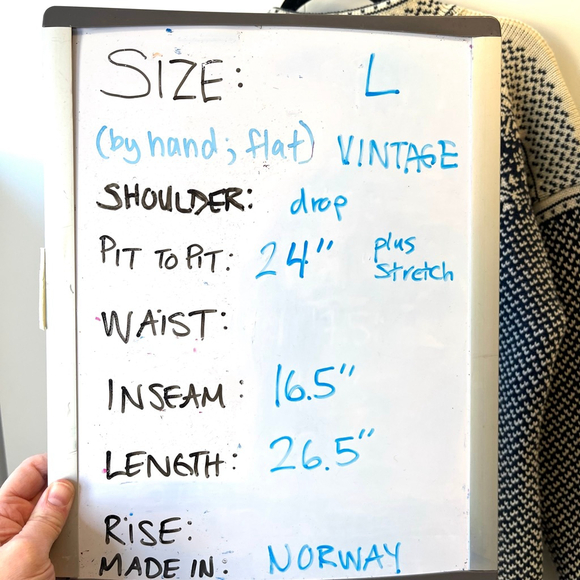 SIZE: L
(by hand; flat) VINTAGE
SHOULDER: drop
PIT TO PIT: 24" plus stretch
WAIST:
INSEAM: 16.5"
LENGTH: 26.5"
RISE:
MADE IN: NORWAY